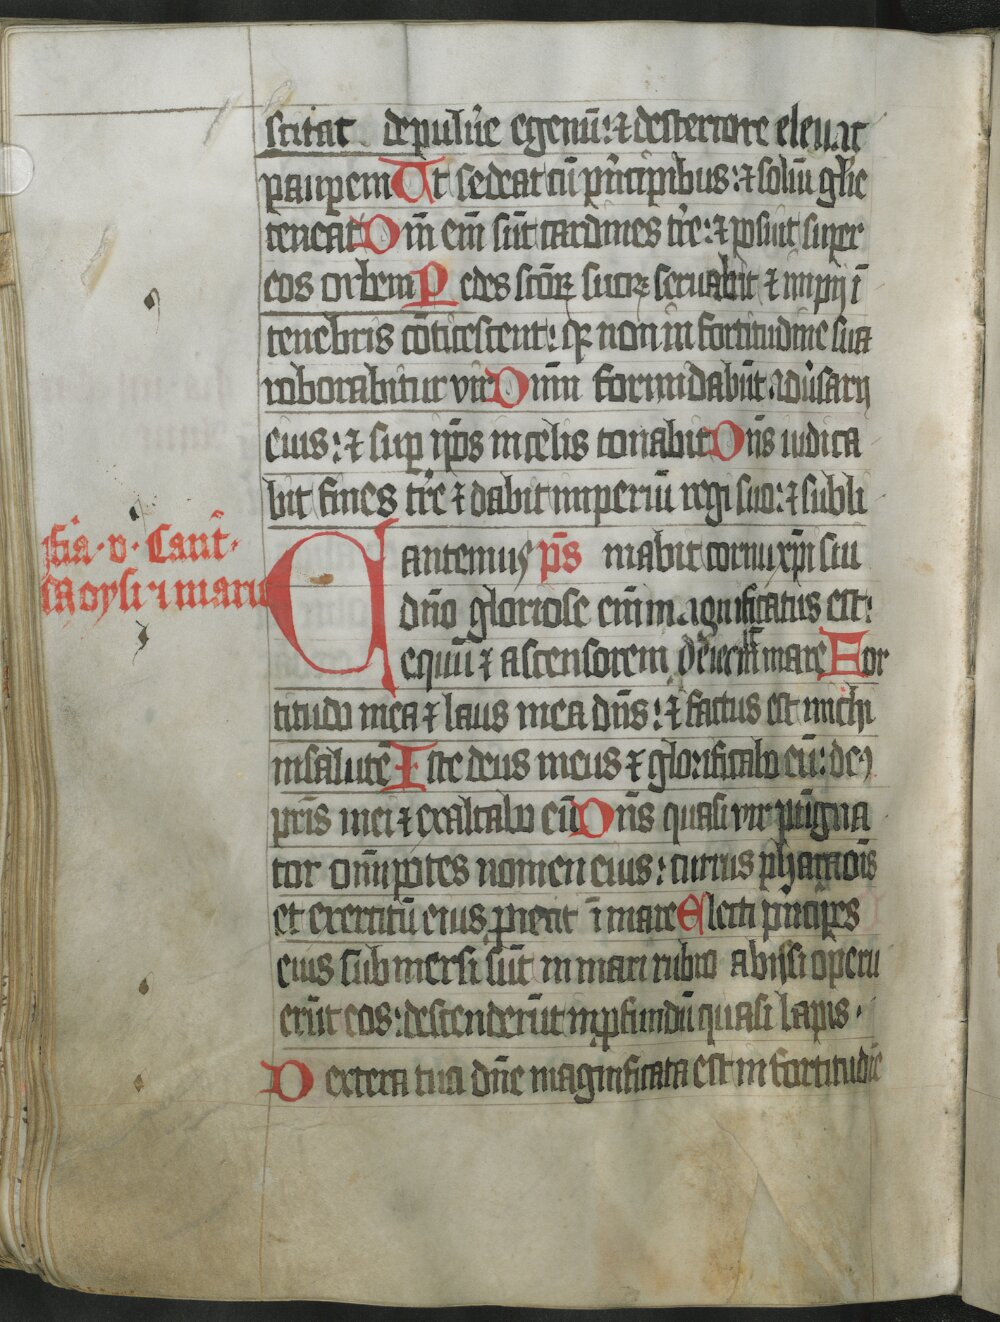 scitat de puluͤe egenū: ⁊ de stercore eleuat
pauperem Ut sedeat cū pͥncipibus: ⁊ soliū gl̄ie
teneat Dn̄i em̄ sūt cardines tr̄e: ⁊ posuit super
eos orbem Pedes sctōꝝ suoꝝ seruabit ⁊ impij ī
tenebris cōticescent: qꝛ non in fortitudine sua
roborabitur vir Dnm̄ formidabūt aduͤsarij
eius: ⁊ suꝑ ip̄os in celis tonabit Dn̄s iudica
bit fines tr̄e ⁊ dabit imperiū regi suo: ⁊ subli
fīa · v · Cant̄ ·
Moysi ī mari
Cantemus p̄s mabit cornu xp̄i sui
dn̄o gloriose em̄ magnificatus est:
equū ⁊ ascensorem deiecit ī mare For
titudo mea ⁊ laus mea dn̄s: ⁊ factus est michi
in salutē Iste deus meus ⁊ glorificabo eū: deꝰ
pr̄is mei ⁊ exaltabo eū Dn̄s quasi vir pugna
tor omīpotēs nomen eius: currus pharaōis
et exercitū eius ꝓiecit ī mare Electi pͥncipes
eius submersi sūt in mari rubro abissi operu
erūt eos: descenderūt in ꝓfundū quasi lapis ·
Dextera tua dn̄e magnificata est in fortitudīe